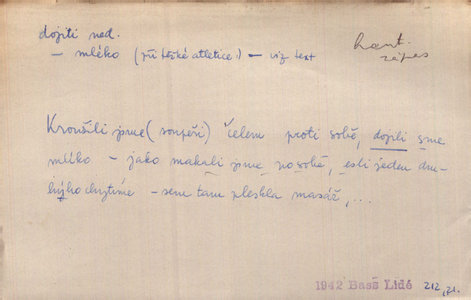 dojiti ned.
– mléko (při těžké atletice) – viz text
zápas
Kroužili jsme (soupeři) čelem proti sobě, dojili sme
mlíko – jako makali jsme po sobě, esli jeden dru-
hýho chytíme – sem tam pleskla masáž, ...
1942 Bass Lidé 212,21.